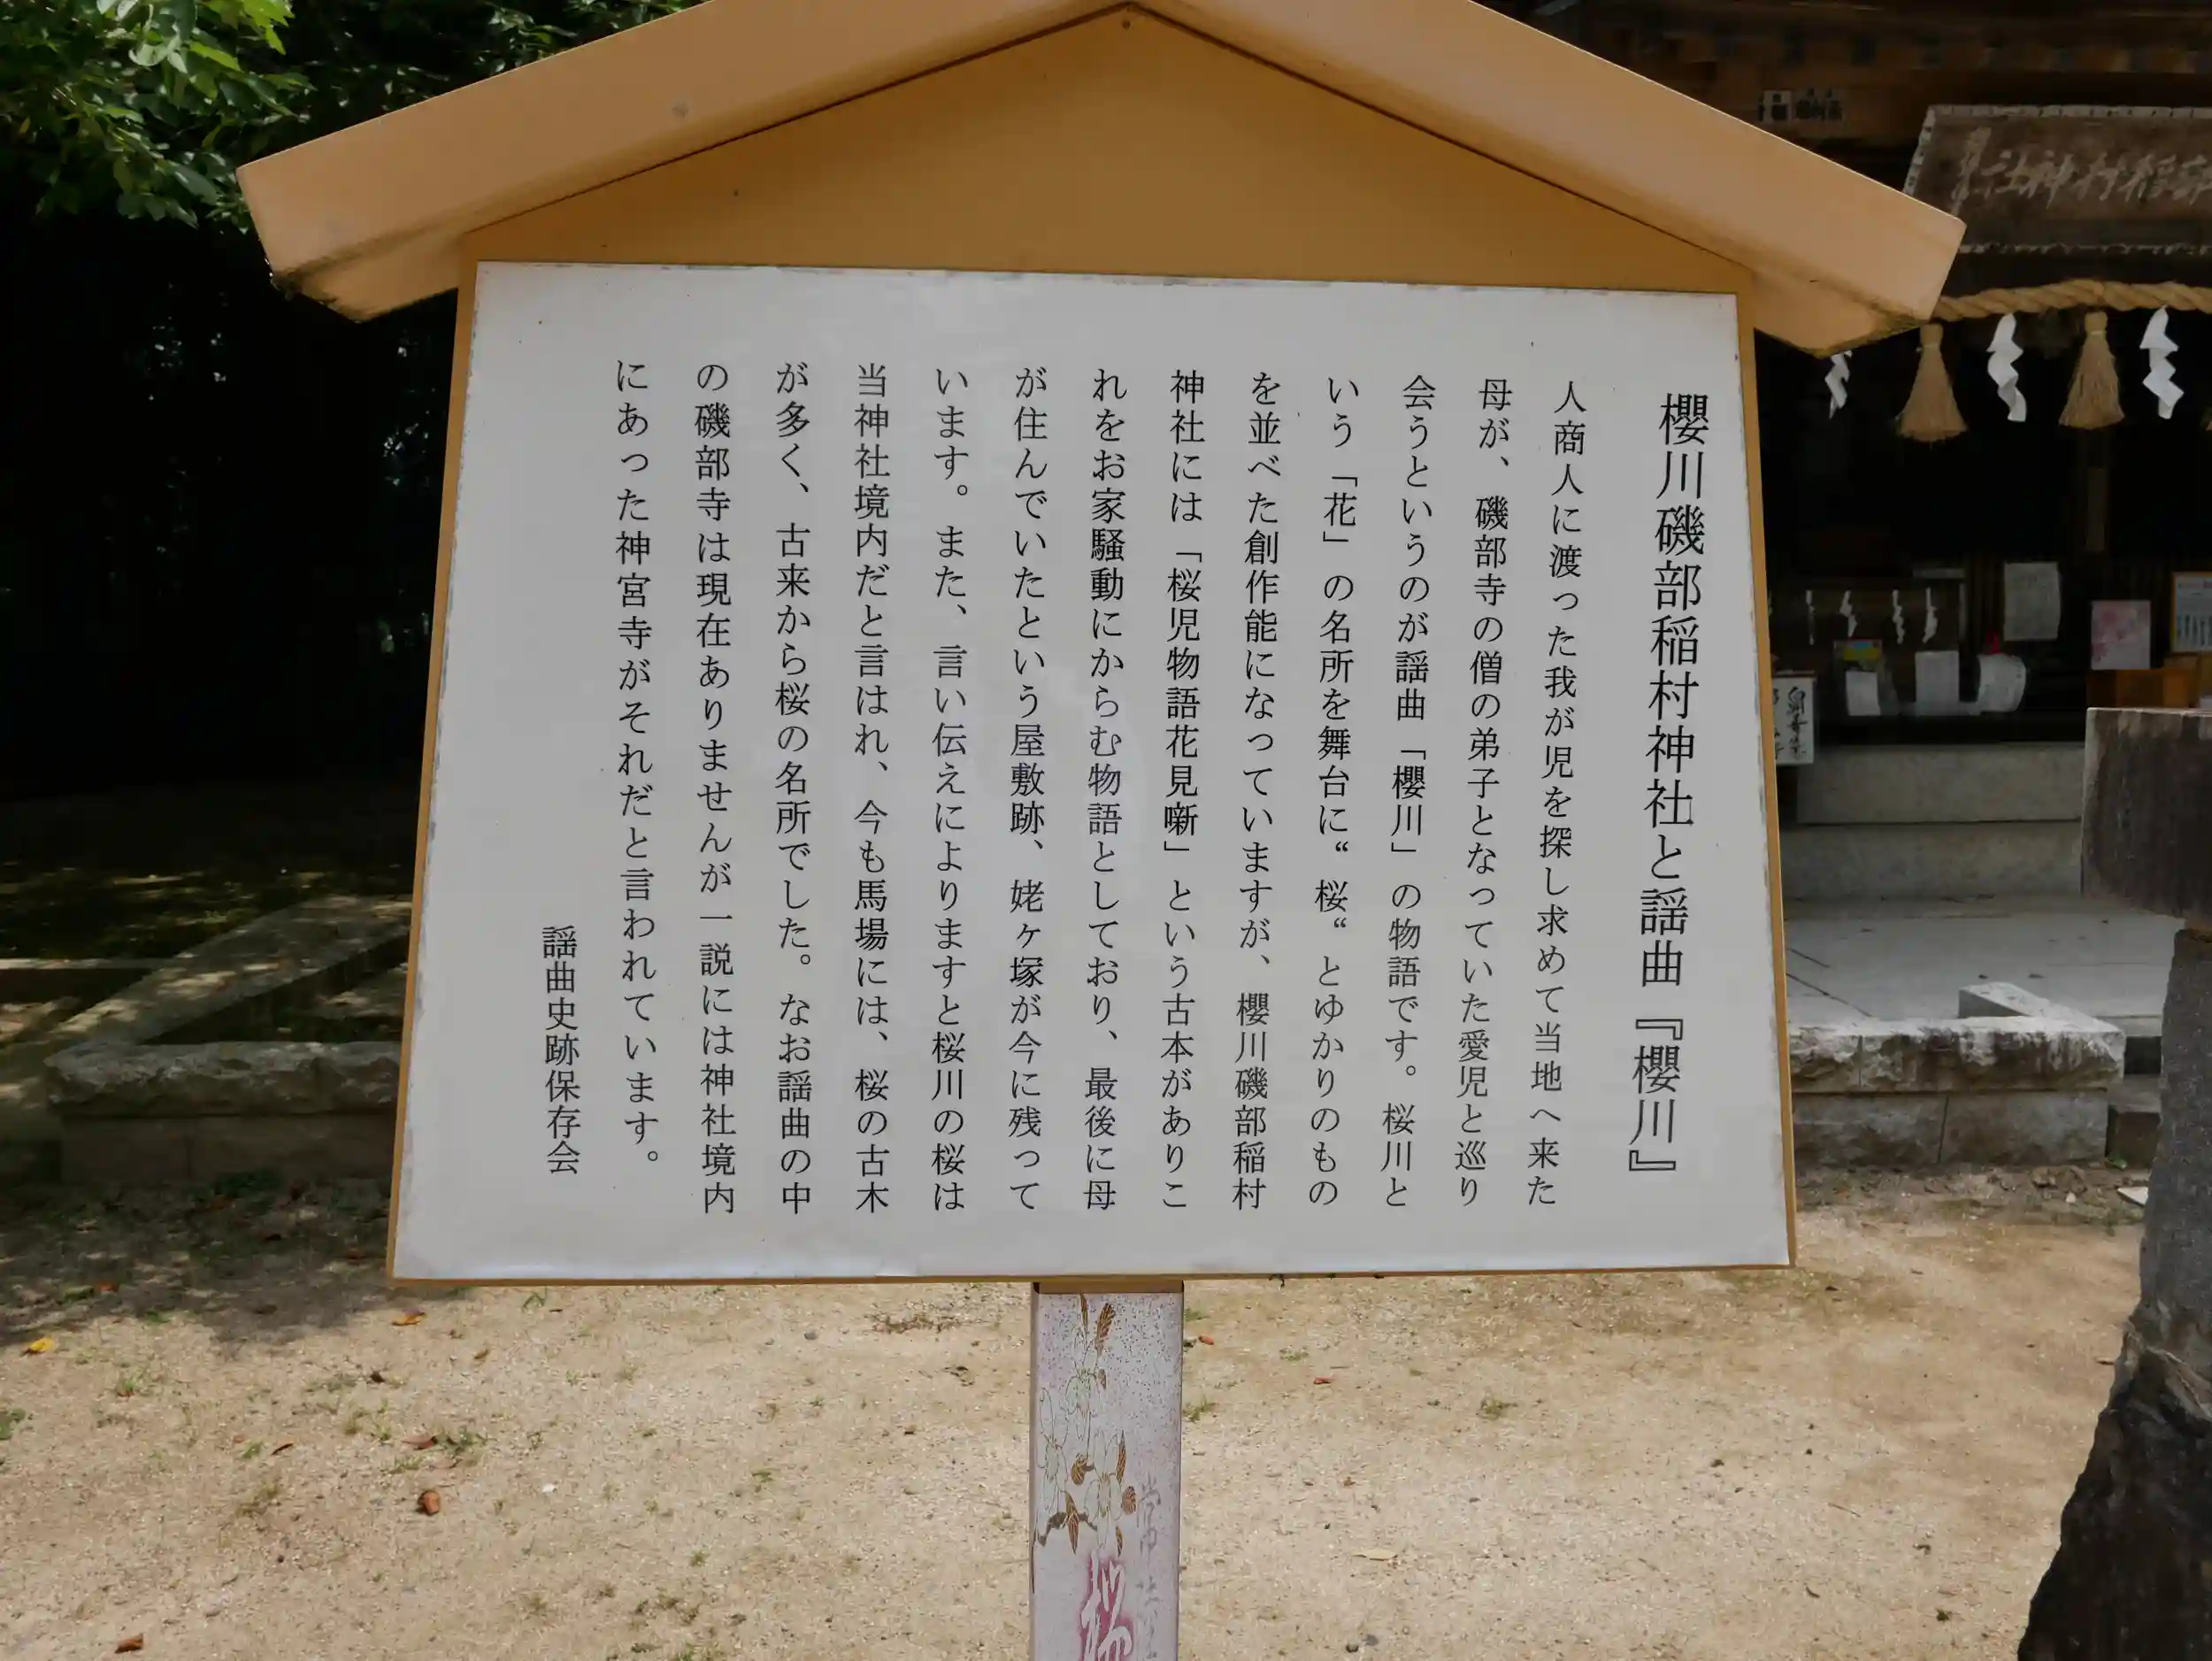 櫻川磯部稲村神社と謡曲『櫻川』
人商人に渡った我が児を探し求めて当地へ来た
母が、磯部寺の僧の弟子となっていた愛児と巡り
会うというのが謡曲「櫻川」の物語です。桜川と
いう「花」の名所を舞台に“桜“とゆかりのもの
を並べた創作能になっていますが、櫻川磯部稲村
神社には「桜児物語花見噺」という古本がありこ
れをお家騒動にからむ物語としており、最後に母
が住んでいたという屋敷跡、姥ヶ塚が今に残って
います。また、言い伝えによりますと桜川の桜は
当神社境内だと言はれ、今も馬場には、桜の古木
が多く、古来から桜の名所でした。なお謡曲の中
の磯部寺は現在ありませんが一説には神社境内
にあった神宮寺がそれだと言われています。
謡曲史跡保存会